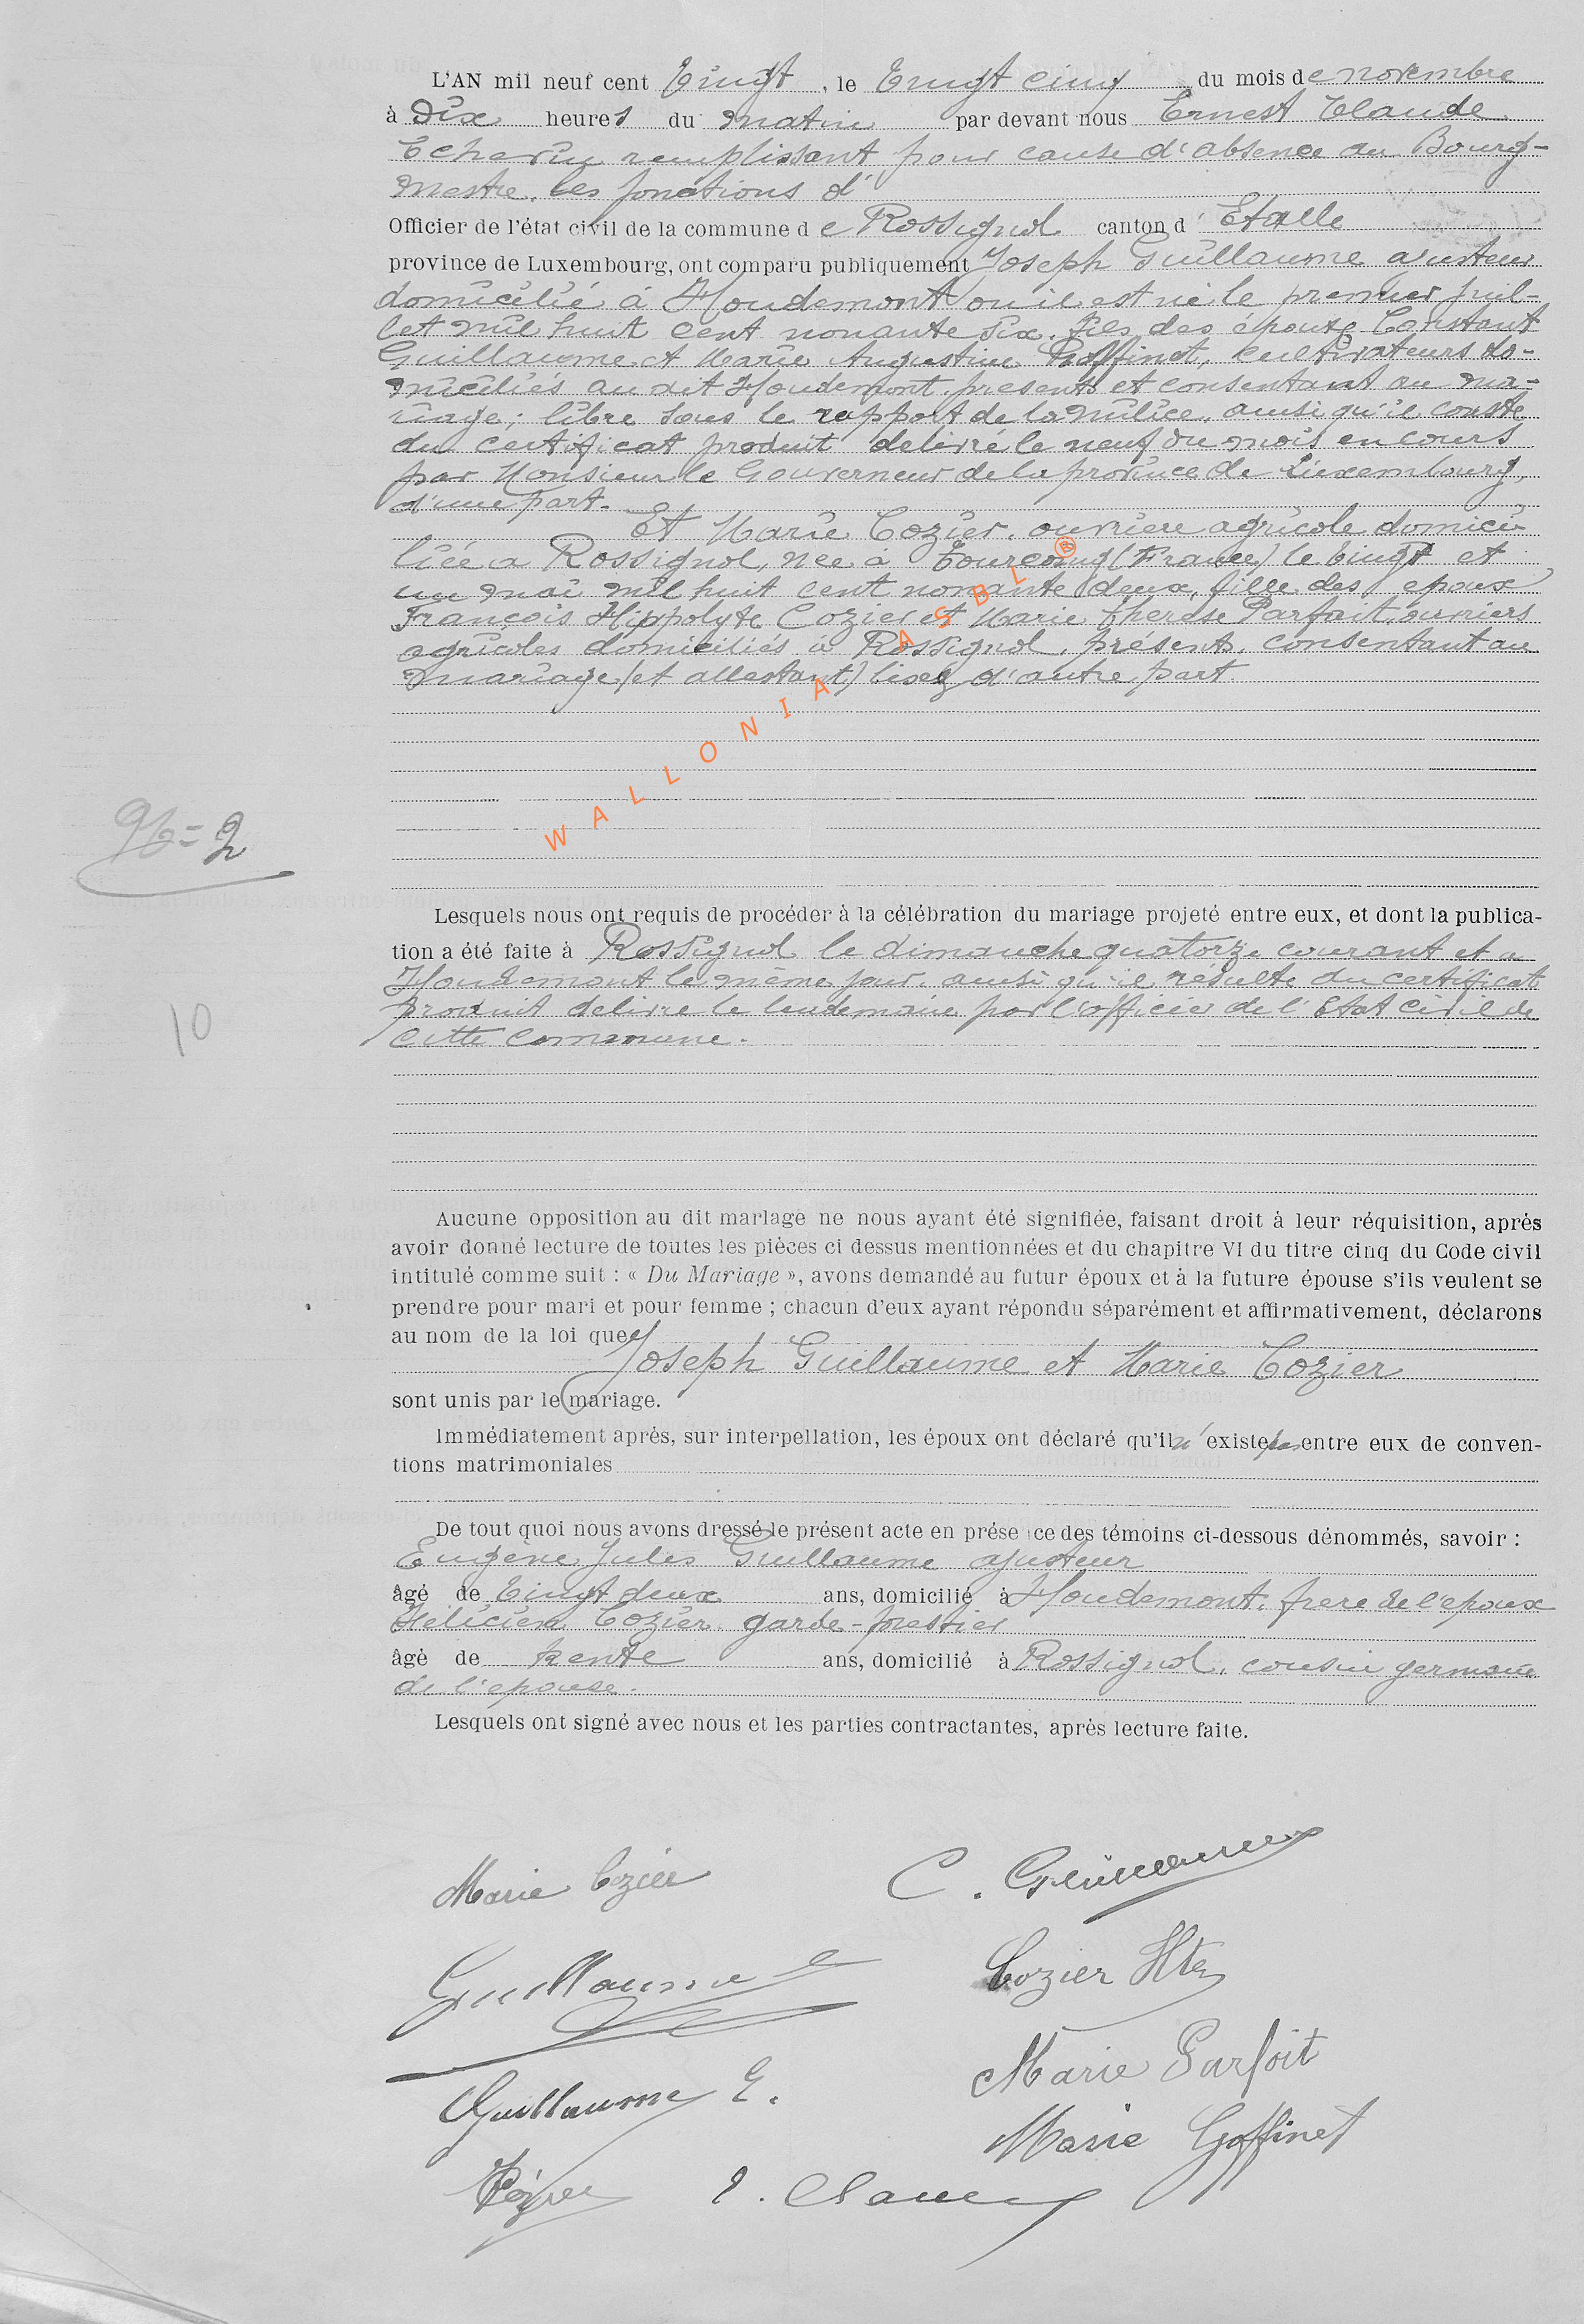 L'AN mil neuf cent Vingt, le Vingt cinq du mois de novembre
à Dix heures du matin par devant nous Ernest Claude
Echevin remplissant pour cause d'absence du Bourg-
mestre, les fonctions d'
Officier de l'état civil de la commune de Rossignol canton d'Etalle
province de Luxembourg, ont comparu publiquement Joseph Guillaume ajusteur
domicilié à Houdemont où il est né le premier juil-
let mil huit cent nonante six, fils des époux Constant
Guillaume et Marie Augustine Goffinet, cultivateurs do-
miciliés au dit Houdemont, présents et consentant au ma-
riage; libre sous le rapport de la milice, ainsi qu'il conste
du certificat produit délivré le neuf du mois en cours
par Monsieur le Gouverneur de la province de Luxembourg,
d'une part.
Et Marie Cozier, ouvrière agricole domici-
liée à Rossignol, née à Tourcoing (France) le vingt et
un mai mil huit cent nonante deux, fille des époux
François Hippolyte Cozier et Marie Thérèse Parfait, ouvriers
agricoles domiciliés à Rossignol, présents, consentant au
mariage, (et attestant) lisez d'autre part.
WALLONIA ASBL ®
96=2
Lesquels nous ont requis de procéder à la célébration du mariage projeté entre eux, et dont la publica-
tion a été faite à Rossignol le dimanche quatorze courant et à
Houdemont le même jour, ainsi qu'il résulte du certificat
produit délivré le lendemain par l'officier de l'Etat Civil de
cette commune.
10
Aucune opposition au dit mariage ne nous ayant été signifiée, faisant droit à leur réquisition, après
avoir donné lecture de toutes les pièces ci dessus mentionnées et du chapitre VI du titre cinq du Code civil
intitulé comme suit : « Du Mariage », avons demandé au futur époux et à la future épouse s'ils veulent se
prendre pour mari et pour femme ; chacun d'eux ayant répondu séparément et affirmativement, déclarons
au nom de la loi que
Joseph Guillaume et Marie Cozier
sont unis par le mariage.
Immédiatement après, sur interpellation, les époux ont déclaré qu'il n'existe pas entre eux de conven-
tions matrimoniales
De tout quoi nous avons dressé le présent acte en présence des témoins ci-dessous dénommés, savoir :
Eugène Jules Guillaume ajusteur
âgé de Vingt deux ans, domicilié à Houdemont, frère de l'époux
Félicien Cozier, garde-forestier
âgé de trente ans, domicilié à Rossignol, cousin germain
de l'épouse.
Lesquels ont signé avec nous et les parties contractantes, après lecture faite.
Marie Cozier C. Guillaume
Guillaume Cozier Hte
Guillaume E. Marie Parfait
Marie Goffinet
E. Claude